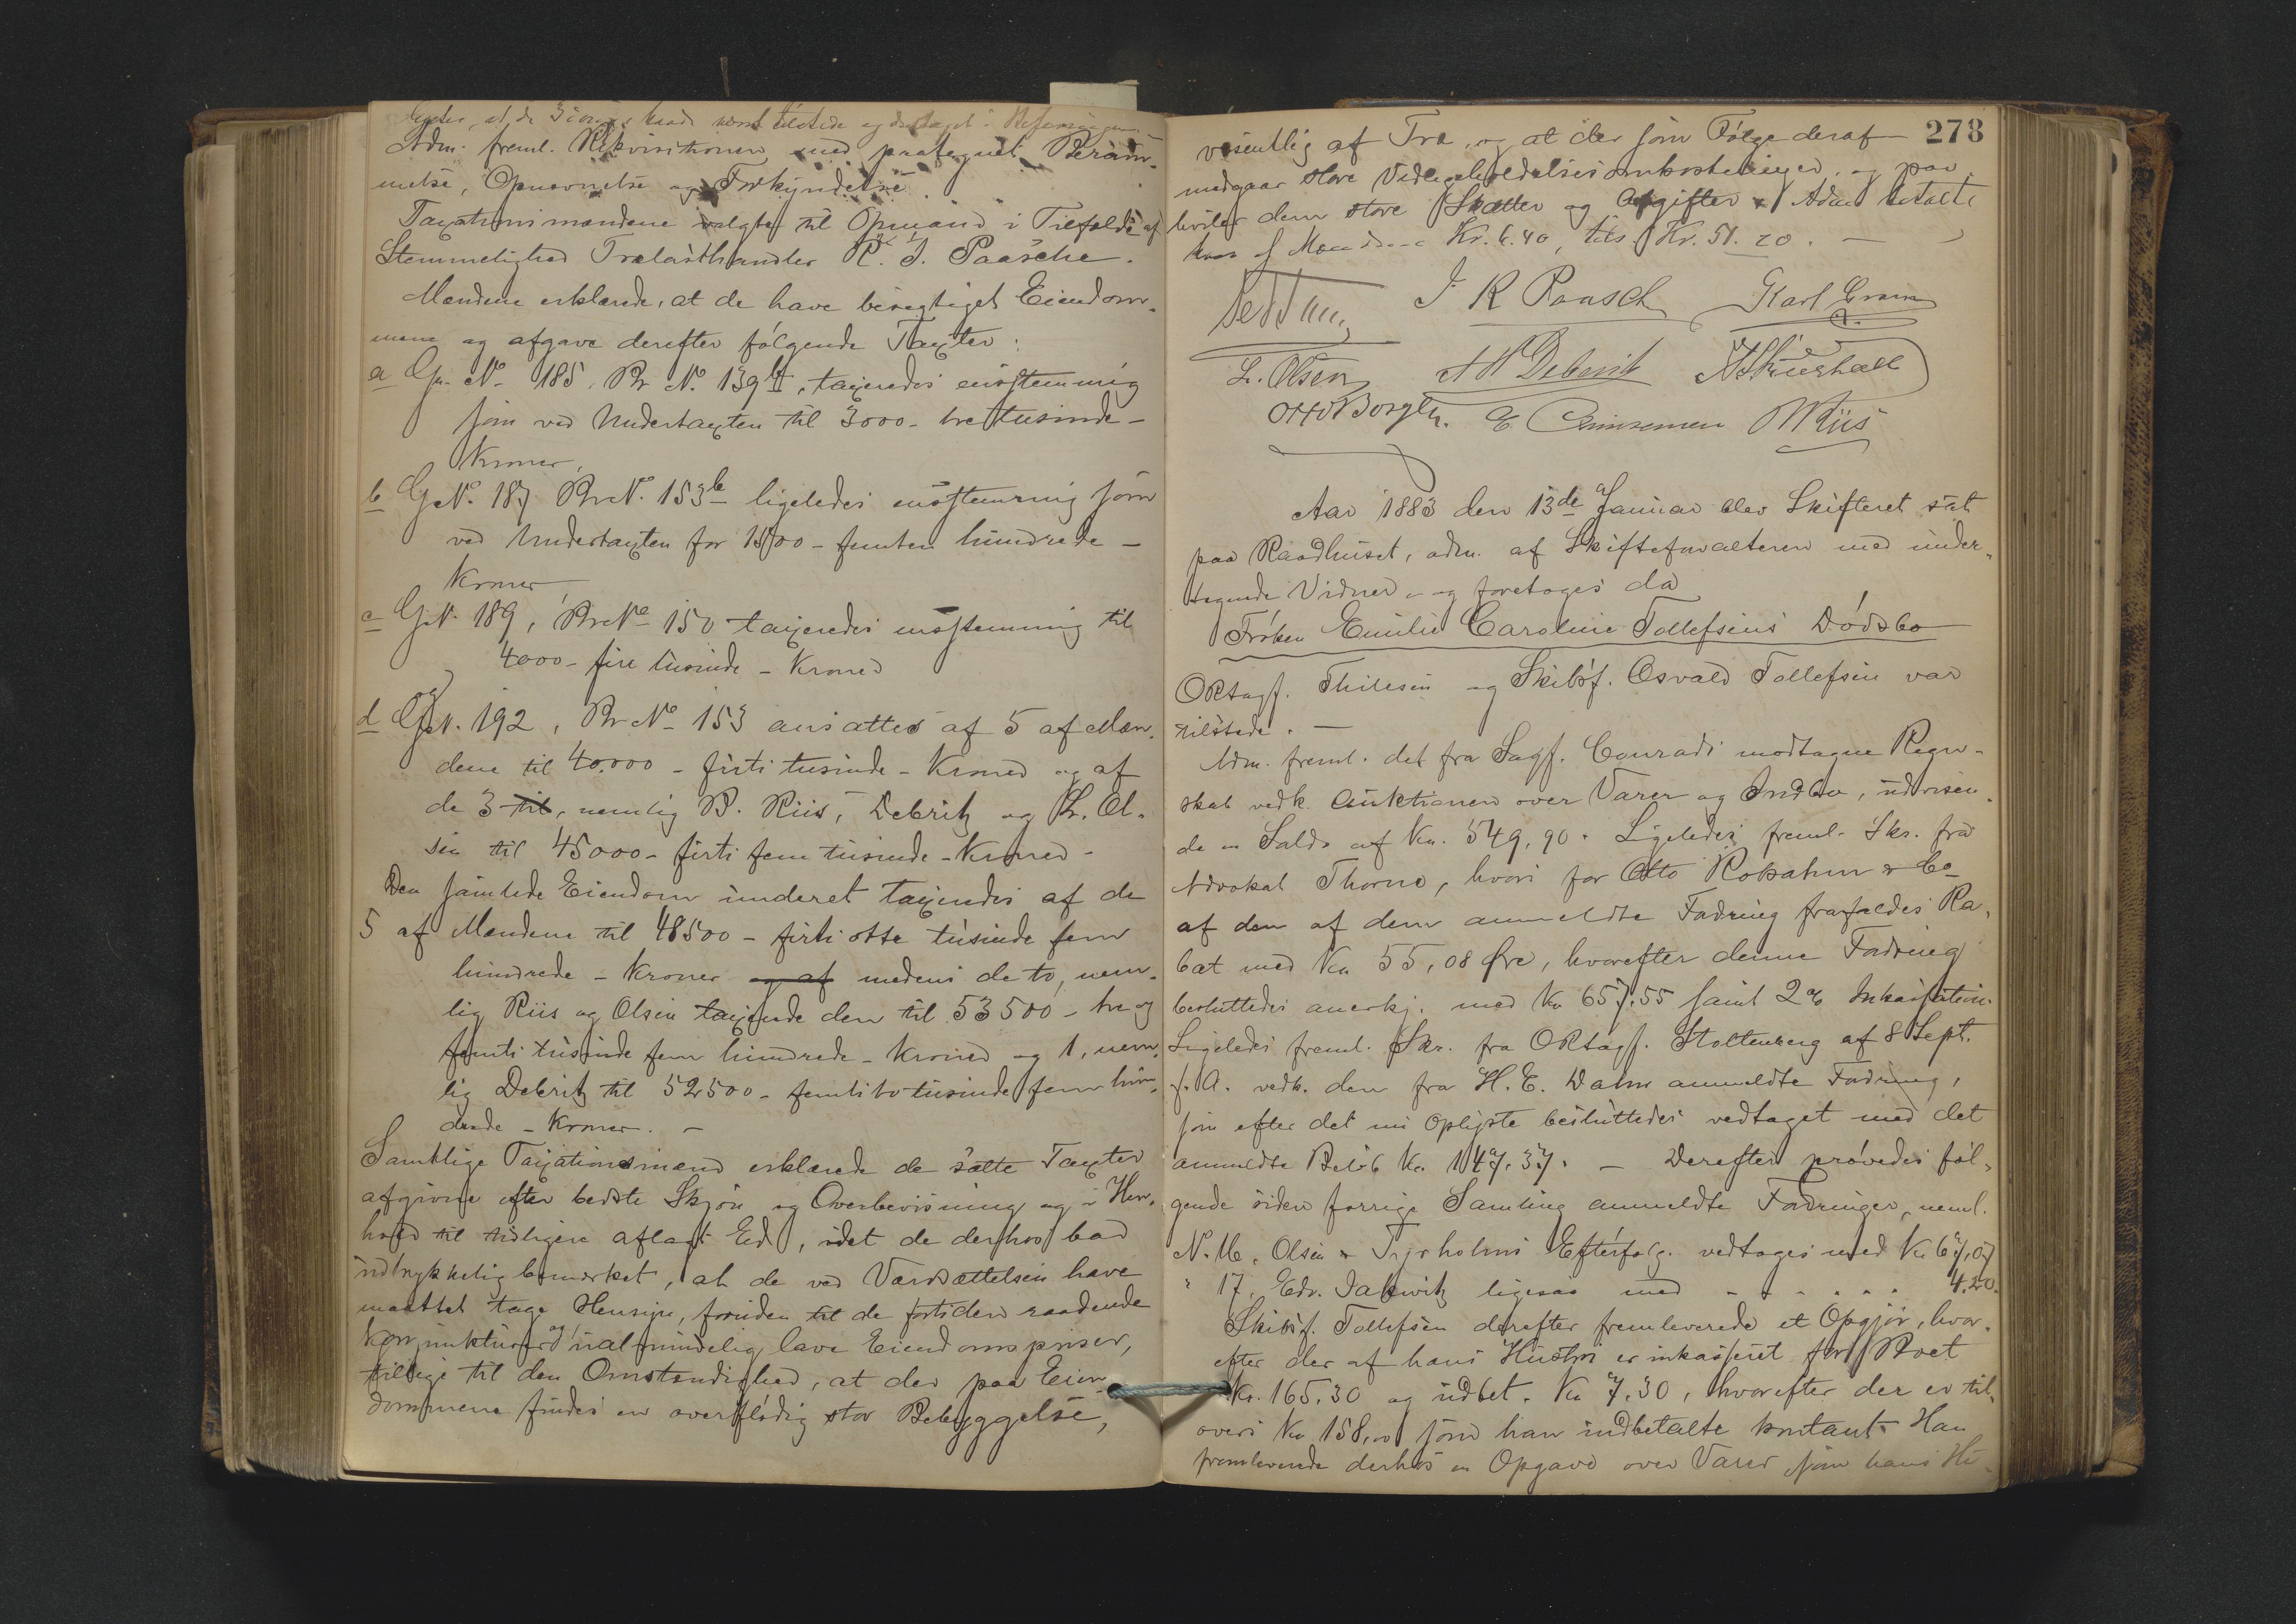 at de
Adm. freml. Rekvisitionen med paategnet Beram-
melse, Opnævnelse og Forkyndelse.
Taxationsmændene valgte til Opmand i Tilfælde af
Stemmelighed Trælasthandler R. J. Paasche.
Mændene erklærede, at de have besigtiget Eiendom-
mene og afgave derefter følgende Taxter:
a G. No 185, Br No. 139b, taxeredes enstemmig
som ved Undertaxten til 3000 - tretusinde -
Kroner,
b G No. 187 Br No. 153b ligeledes enstemmig som
ved Undertaxten for 1500 - femten hundrede -
Kroner
c G.N. 189, Br No 150 taxeredes enstemmig til
4000 - fire tusinde - Kroner
og
d G.N. 192, Br No 153 ansattes af 5 af Mæn-
dene til 40.000 - firti tusinde - Kroner og af
de 3 til, nemlig B. Riis, Debritz og L. Ol-
sen til 45000 - firti fem tusinde - Kroner -
Den samlede Eiendom underet taxeredes af de
5 af Mændene til 48500 - firti otte tusinde fem
hundrede - Kroner og af medens de to, nem-
lig Riis og Olsen taxerede den til 53500 - tre og
femti tusinde fem hundrede - Kroner og 1, nem-
lig Debritz til 52500 - femti to tusinde fem hun-
drede - Kroner. -
Samtlige Taxationsmænd erklærede de satte Taxter
afgivne efter bedste Skjøn og Overbevisning og i Hen-
hold til tidligere aflagt Ed, idet de derhos bad
udtrykkelig bemærket, at de ved Værdsættelsen have
maattet tage Hensyn, foruden til de for tiden raadende
Konjunkturer og ualmindelig lave Eiendomspriser,
tillige til den Omstændighed, at der paa Eien-
dommene findes en overflødig stor Bebyggelse,
278
væsentlig af Træ, og at der som Følge deraf
medgaar store Vedligeholdelsesomkostninger, og paa
hviler dem store Skatter og Afgifter. Adm. betalte
hver af Mændene Kr. 6.40, tils. Kr. 51.20. -
J R Paasch Karl Gram
L. Olsen A H Debrit
Otto Borge Riis
Aar 1883 den 13de Januar blev Skifteret sat
paa Raadhuset, adm. af Skifteforvalteren med under-
tegnede Vidner - og foretoges da
Frøken Emilie Caroline Tollefsens Dødsbo
ORsagf. Thilesen og Skibsf. Osvald Tollefsen var
tilstede. -
Adm. freml. det fra Sagf. Conradi modtagne Regn-
skab vedk. Auktionen over Varer og Indbo, udvisen-
de en Saldo af Kr. 549,90. Ligeledes freml. Skr. fra
Advokat Thorne, hvori for Otto Robsahm & Co
af den af dem anmeldte Fordring frafaldes Ra-
bat med Kr 55,08 Øre, hvorefter denne Fordring
besluttedes anerkj. med Kr 657.55 samt 2% Inkassation.
Ligeledes freml. Skr. fra ORsagf. Stoltenberg af 8 Sept.
f. A. vedk. den fra H. E. Dahm anmeldte Fordring,
som efter det nu oplyste besluttedes vedtaget med det
anmeldte Beløb Kr. 147.37. - Derefter prøvedes føl-
gende siden forrige Samling anmeldte Fordringer, neml.
N. 16, Olsen & Tyrholms Efterfølg. vedtages med Kr 67,07
" 17, Edv. Jakwitz ligesaa med - - - - - 4.20.
Skibsf. Tollefsen derefter fremleverede et Opgjør, hvor-
efter der af hans Hustru er inkasseret for Boet
Kr. 165.30 og udbet. Kr 7.30, hvorefter der er til-
overs Kr 158,00 som han indbetalte kontant. Han
fremleverede derhos en Opgave over Varer som hans Hu-